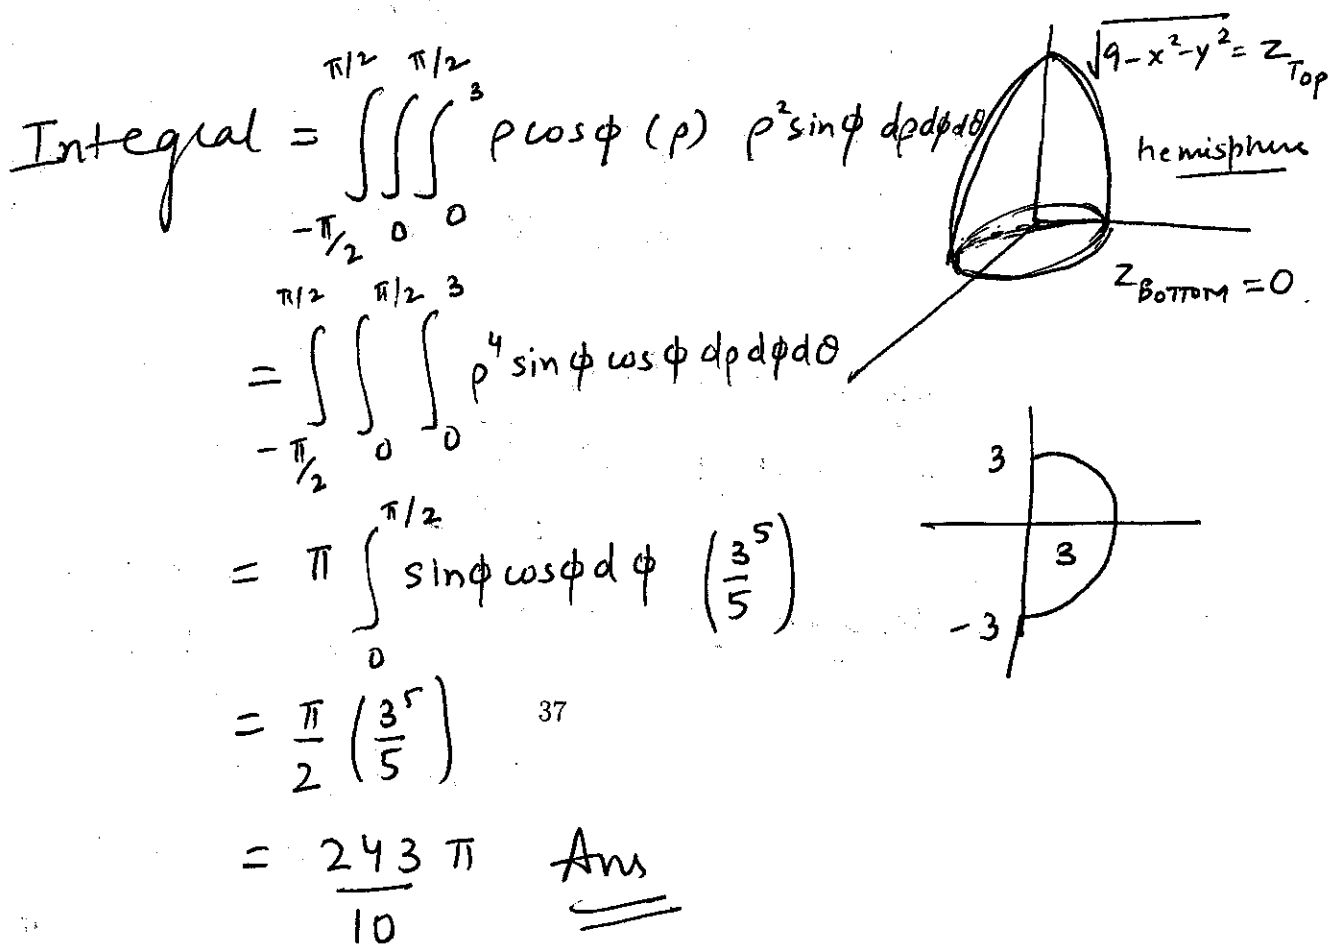 Integral = ∫_{-π/2}^{π/2} ∫_0^{π/2} ∫_0^3 ρ cosφ (ρ) ρ² sinφ dρdφdθ
√(9-x²-y²) = Z_Top
hemisphere
Z_BOTTOM = 0.
= ∫_{-π/2}^{π/2} ∫_0^{π/2} ∫_0^3 ρ⁴ sin φ cos φ dρ dφ dθ
3
3
-3
= π ∫_0^{π/2} sinφ cosφ d φ (3⁵/5)
= π/2 (3⁵/5)
37
= 243/10 π Ans